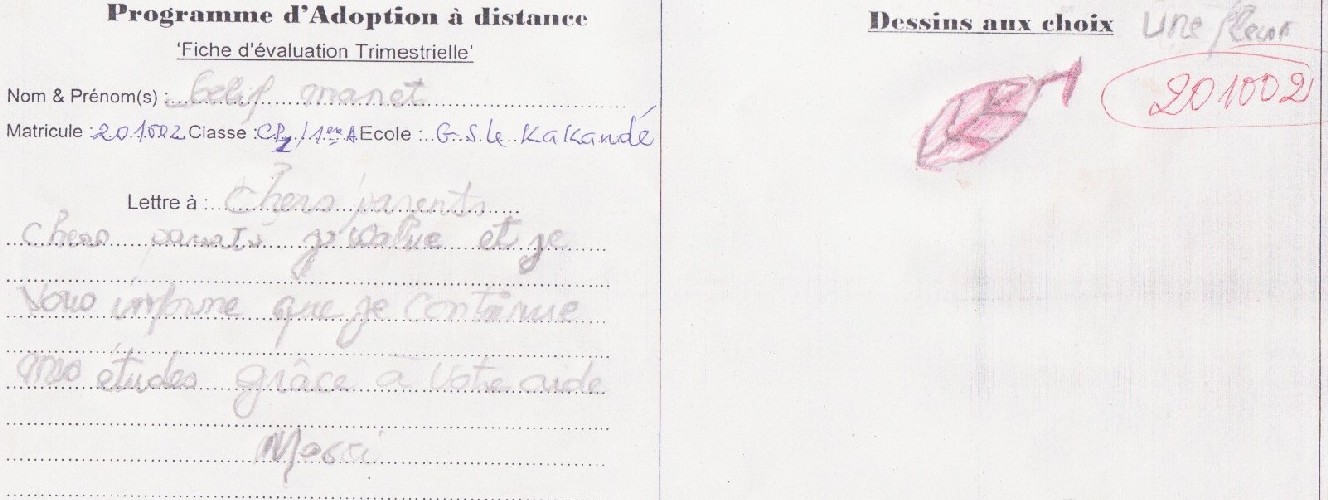 Programme d'Adoption à distance
'Fiche d'évaluation Trimestrielle'
Nom & Prénom(s) : manet
Matricule : 201002 Classe : CP2 / 1ère A Ecole : G.S. le Kakandé
Lettre à : Chers parents
Chers parents je salue et je
vous informe que je continue
mes études grâce à votre aide
Merci
Dessins aux choix une fleur
201002